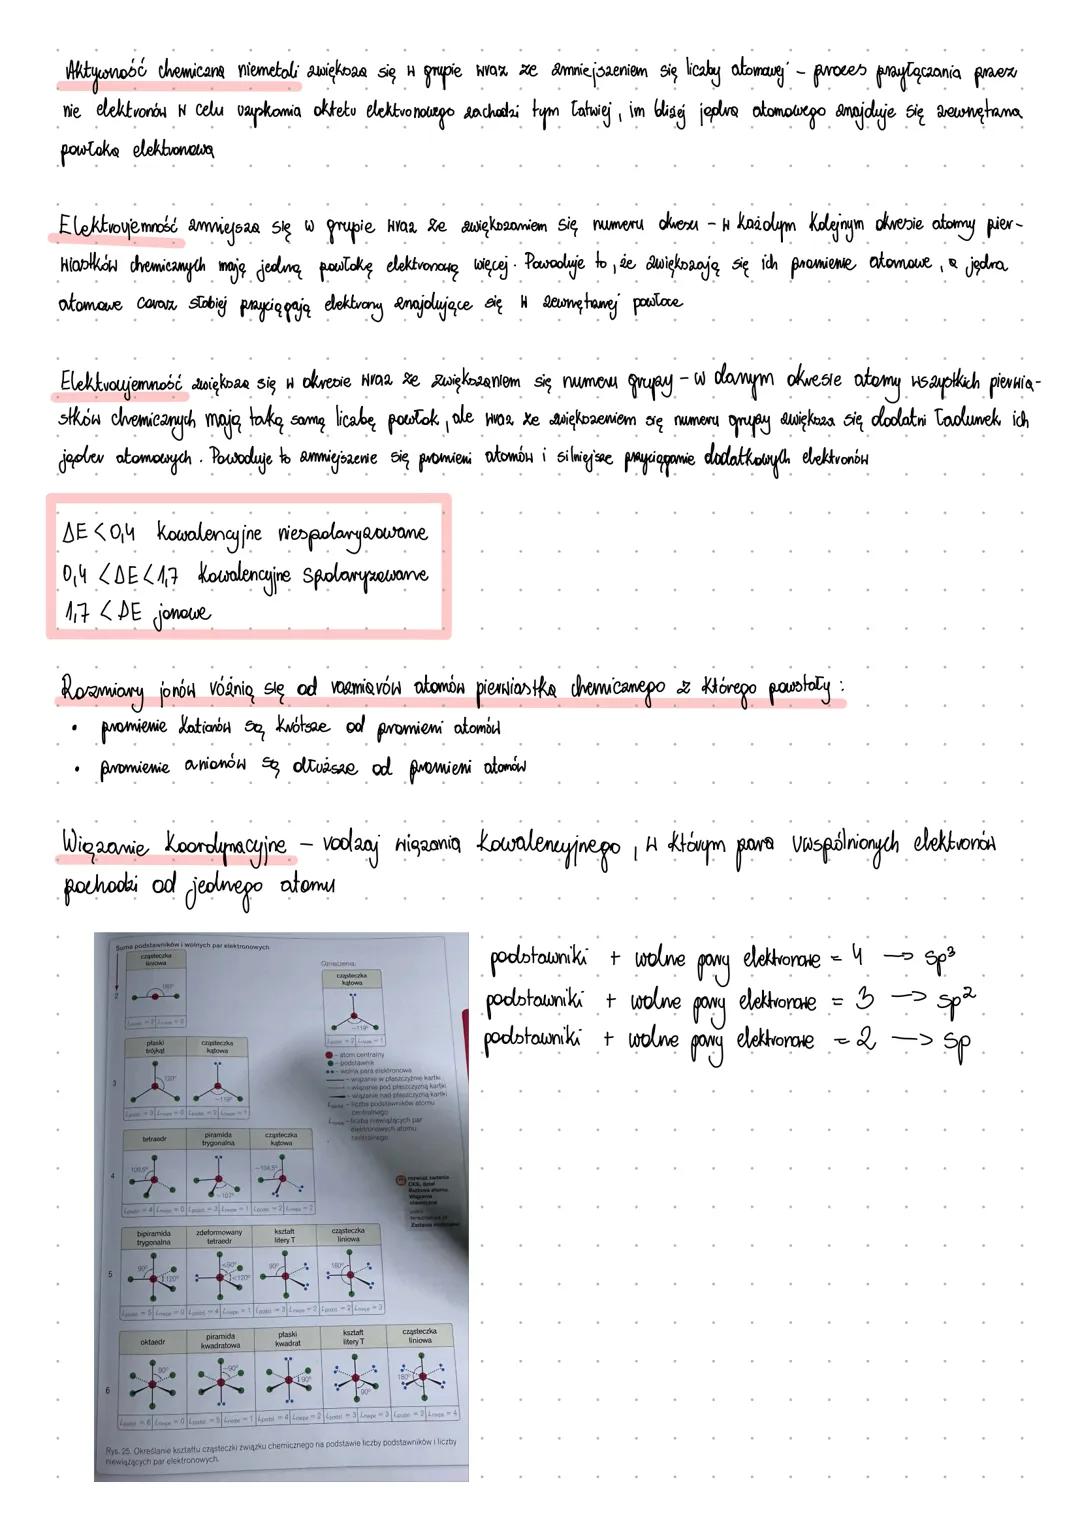 Aktywność chemiczna niemetali zwiększa się w grupie wraz ze zmniejszaniem się liczby atomowej - proces przyłączania przez
nie elektronów w celu uzyskania oktetu elektronowego zachodzi tym łatwiej, im bliżej jądra atomowego znajduje się zewnętrzna
powłoka elektronowa
Elektroujemność zmniejsza się w grupie wraz ze zwiększaniem się numeru okresu - w każdym kolejnym okresie atomy pier-
wiastków chemicznych mają jedną powłokę elektronową więcej. Powoduje to, że zwiększają się ich promienie atomowe, a jądra
atomowe coraz słabiej przyciągają elektrony znajdujące się w zewnętrznej powłoce
Elektroujemność zwiększa się w okresie wraz ze zwiększaniem się numeru grupy - w danym okresie atomy wszystkich pierwia-
stków chemicznych mają taką samą liczbę powłok, ale wraz ze zwiększeniem się numeru grupy zwiększa się dodatni ładunek ich
jąder atomowych. Powoduje to zmniejszenie się promieni atomów i silniejsze przyciąganie dodatkowych elektronów
ΔE < 0,4 kowalencyjne niespolaryzowane
0,4 < ΔE < 1,7 kowalencyjne spolaryzowane
1,7 < ΔE jonowe
Rozmiary jonów różnią się od rozmiarów atomów pierwiastka chemicznego z którego powstały:
• promienie kationów są krótsze od promieni atomów
• promienie anionów są dłuższe od promieni atomów
Wiązanie koordynacyjne - rodzaj wiązania kowalencyjnego, w którym para uwspólnionych elektronów
pochodzi od jednego atomu
podstawniki + wolne pary elektronowe = 4 → sp³
podstawniki + wolne pary elektronowe = 3 → sp²
podstawniki + wolne pary elektronowe = 2 → sp
Suma podstawników i wolnych par elektronowych
cząsteczka
liniowa
180°
2
Oznaczenia:
cząsteczka
kątowa
~119°
- atom centralny
- podstawnik
- wolna para elektronowa
- wiązanie w płaszczyźnie kartki
- wiązanie pod płaszczyzną kartki
- wiązanie nad płaszczyzną kartki
- liczba podstawników atomu
centralnego
- liczba niewiążących par
elektronowych atomu
centralnego
płaski
trójkąt
cząsteczka
kątowa
3
120°
~119°
tetraedr
piramida
trygonalna
cząsteczka
kątowa
4
109,5°
~107°
~104,5°
bipiramida
trygonalna
zdeformowany
tetraedr
kształt
litery T
cząsteczka
liniowa
5
90°
120°
<90°
<120°
90°
180°
oktaedr
piramida
kwadratowa
płaski
kwadrat
kształt
litery T
cząsteczka
liniowa
6
90°
~90°
90°
90°
180°
Rys. 25. Określanie kształtu cząsteczki związku chemicznego na podstawie liczby podstawników i liczby
niewiążących par elektronowych.